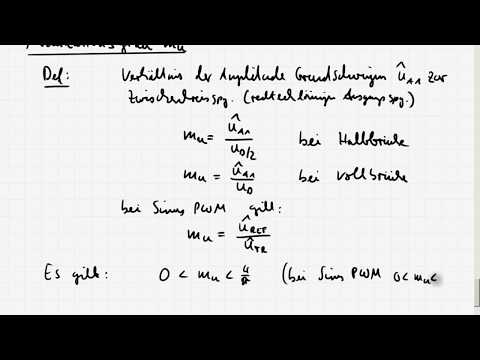 Def: Verhältnis der Amplitude Grundschwingung û_A1 zur
Zwischenkreisspg. (rechteckförmigen Ausgangsspg.)
m_u = û_A1 / u_D/2 bei Halbbrücke
m_u = û_A1 / u_D bei Vollbrücke
bei Sinus PWM gilt:
m_u = û_REF / û_TR
Es gilt: 0 < m_u < 4/π (bei Sinus PWM 0 < m_u <